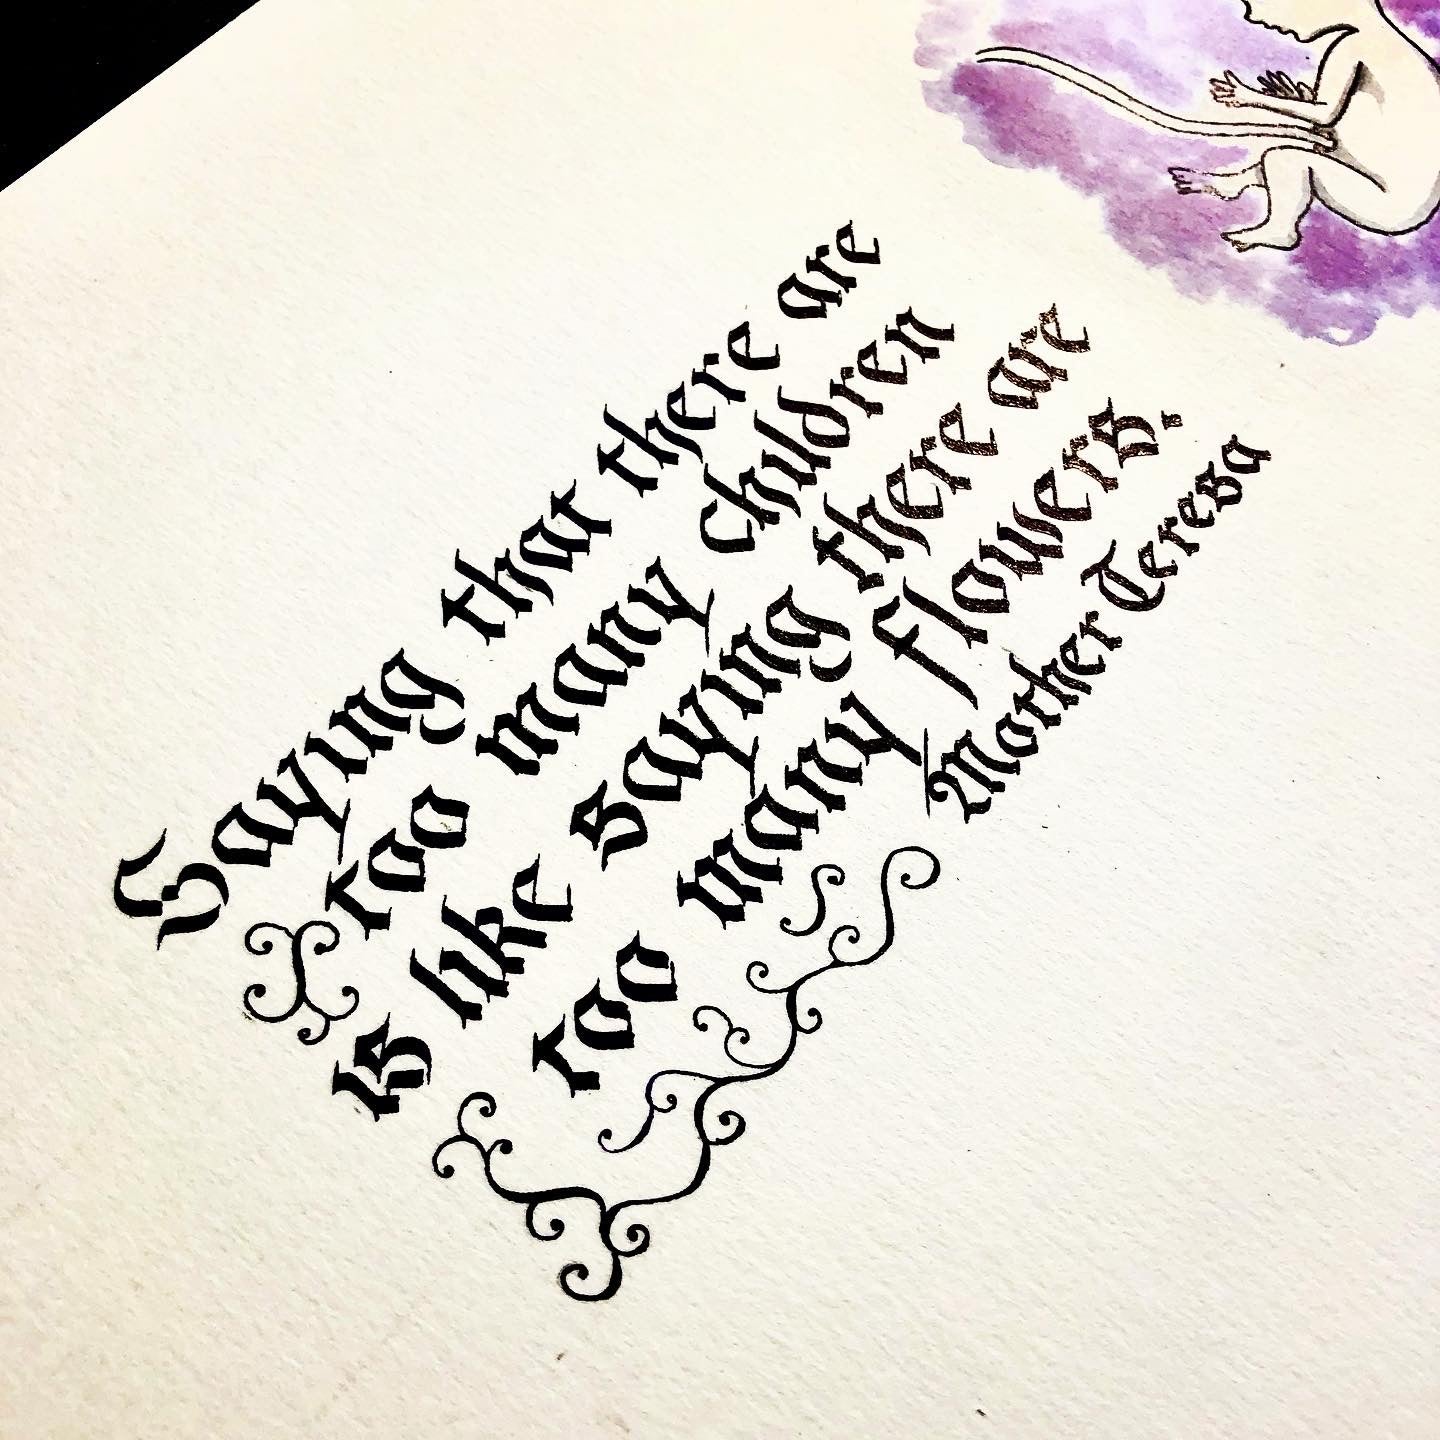 Saying that there are
too many children
is like saying there are
too many flowers.
Mother Teresa